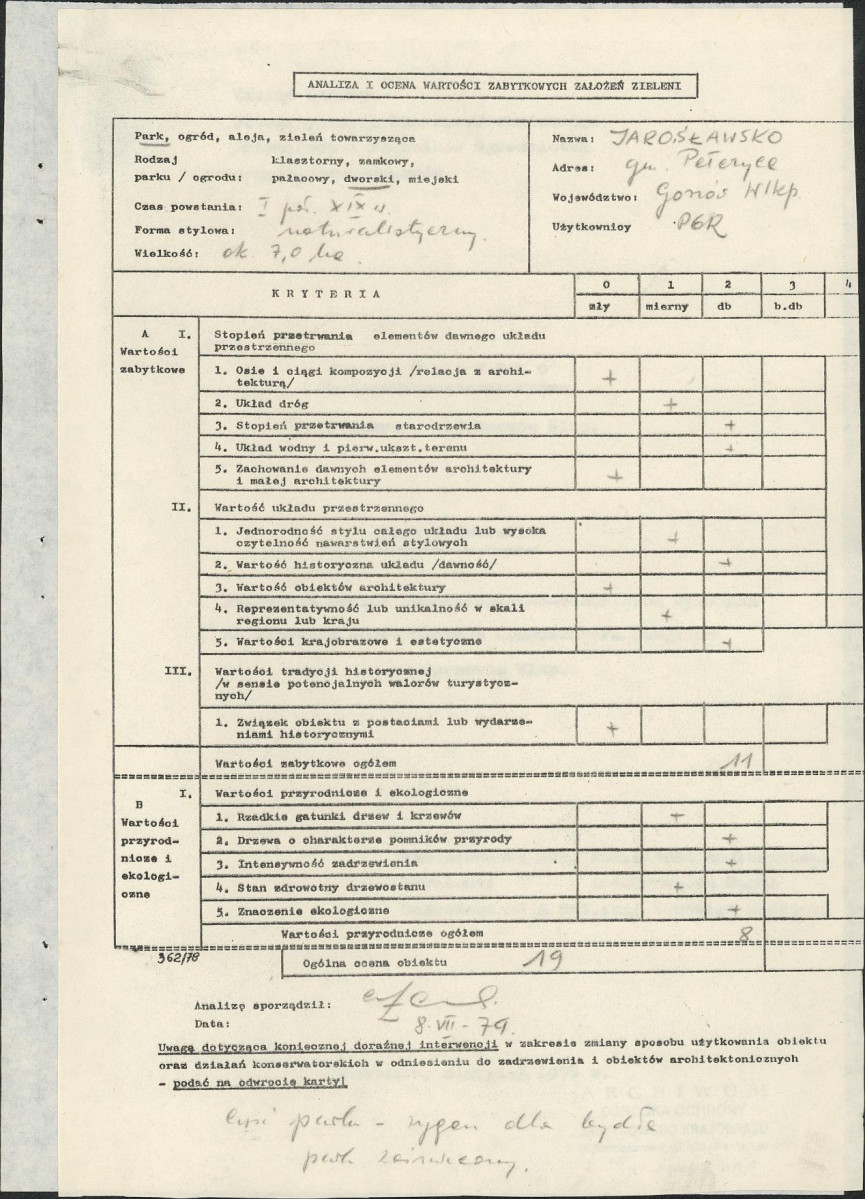 ANALIZA I OCENA WARTOŚCI ZABYTKOWYCH ZAŁOŻEŃ ZIELENI
Park, ogród, aleja, zieleń towarzysząca
Rodzaj klasztorny, zamkowy,
parku / ogrodu: pałacowy, dworski, miejski
Czas powstania: I poł. XIX w.
Forma stylowa: naturalistyczny.
Wielkość: ok. 7,0 ha.
Nazwa: JAROSŁAWSKO
Adres: gm. Pełczyce
Województwo: Gorzów Wlkp.
Użytkownicy PGR
KRYTERIA 0 1 2 3 4
zły mierny db b.db
A I. Stopień przetrwania elementów dawnego układu
Wartości przestrzennego
zabytkowe 1. Osie i ciągi kompozycji /relacja z archi-
tekturą/ +
2. Układ dróg +
3. Stopień przetrwania starodrzewia +
4. Układ wodny i pierw.ukszt.terenu +
5. Zachowanie dawnych elementów architektury
i małej architektury +
II. Wartość układu przestrzennego
1. Jednorodność stylu całego układu lub wysoka
czytelność nawarstwień stylowych +
2. Wartość historyczna układu /dawność/ +
3. Wartość obiektów architektury +
4. Reprezentatywność lub unikalność w skali
regionu lub kraju +
5. Wartości krajobrazowe i estetyczne +
III. Wartości tradycji historycznej
/w sensie potencjalnych walorów turystycz-
nych/
1. Związek obiektu z postaciami lub wydarze-
niami historycznymi +
Wartości zabytkowe ogółem 11
I. Wartości przyrodnicze i ekologiczne
B
Wartości 1. Rzadkie gatunki drzew i krzewów +
przyrod- 2. Drzewa o charakterze pomników przyrody +
nicze i 3. Intensywność zadrzewienia +
ekologi- 4. Stan zdrowotny drzewostanu +
czne 5. Znaczenie ekologiczne +
Wartości przyrodnicze ogółem 8
362/78 Ogólna ocena obiektu 19
Analizę sporządził:
Data: 8.VII-79.
Uwagę dotycząca koniecznej doraźnej interwencji w zakresie zmiany sposobu użytkowania obiektu
oraz działań konserwatorskich w odniesieniu do zadrzewienia i obiektów architektonicznych
- podać na odwrocie karty!
część parku - wygon dla bydła
park zaśmiecony.